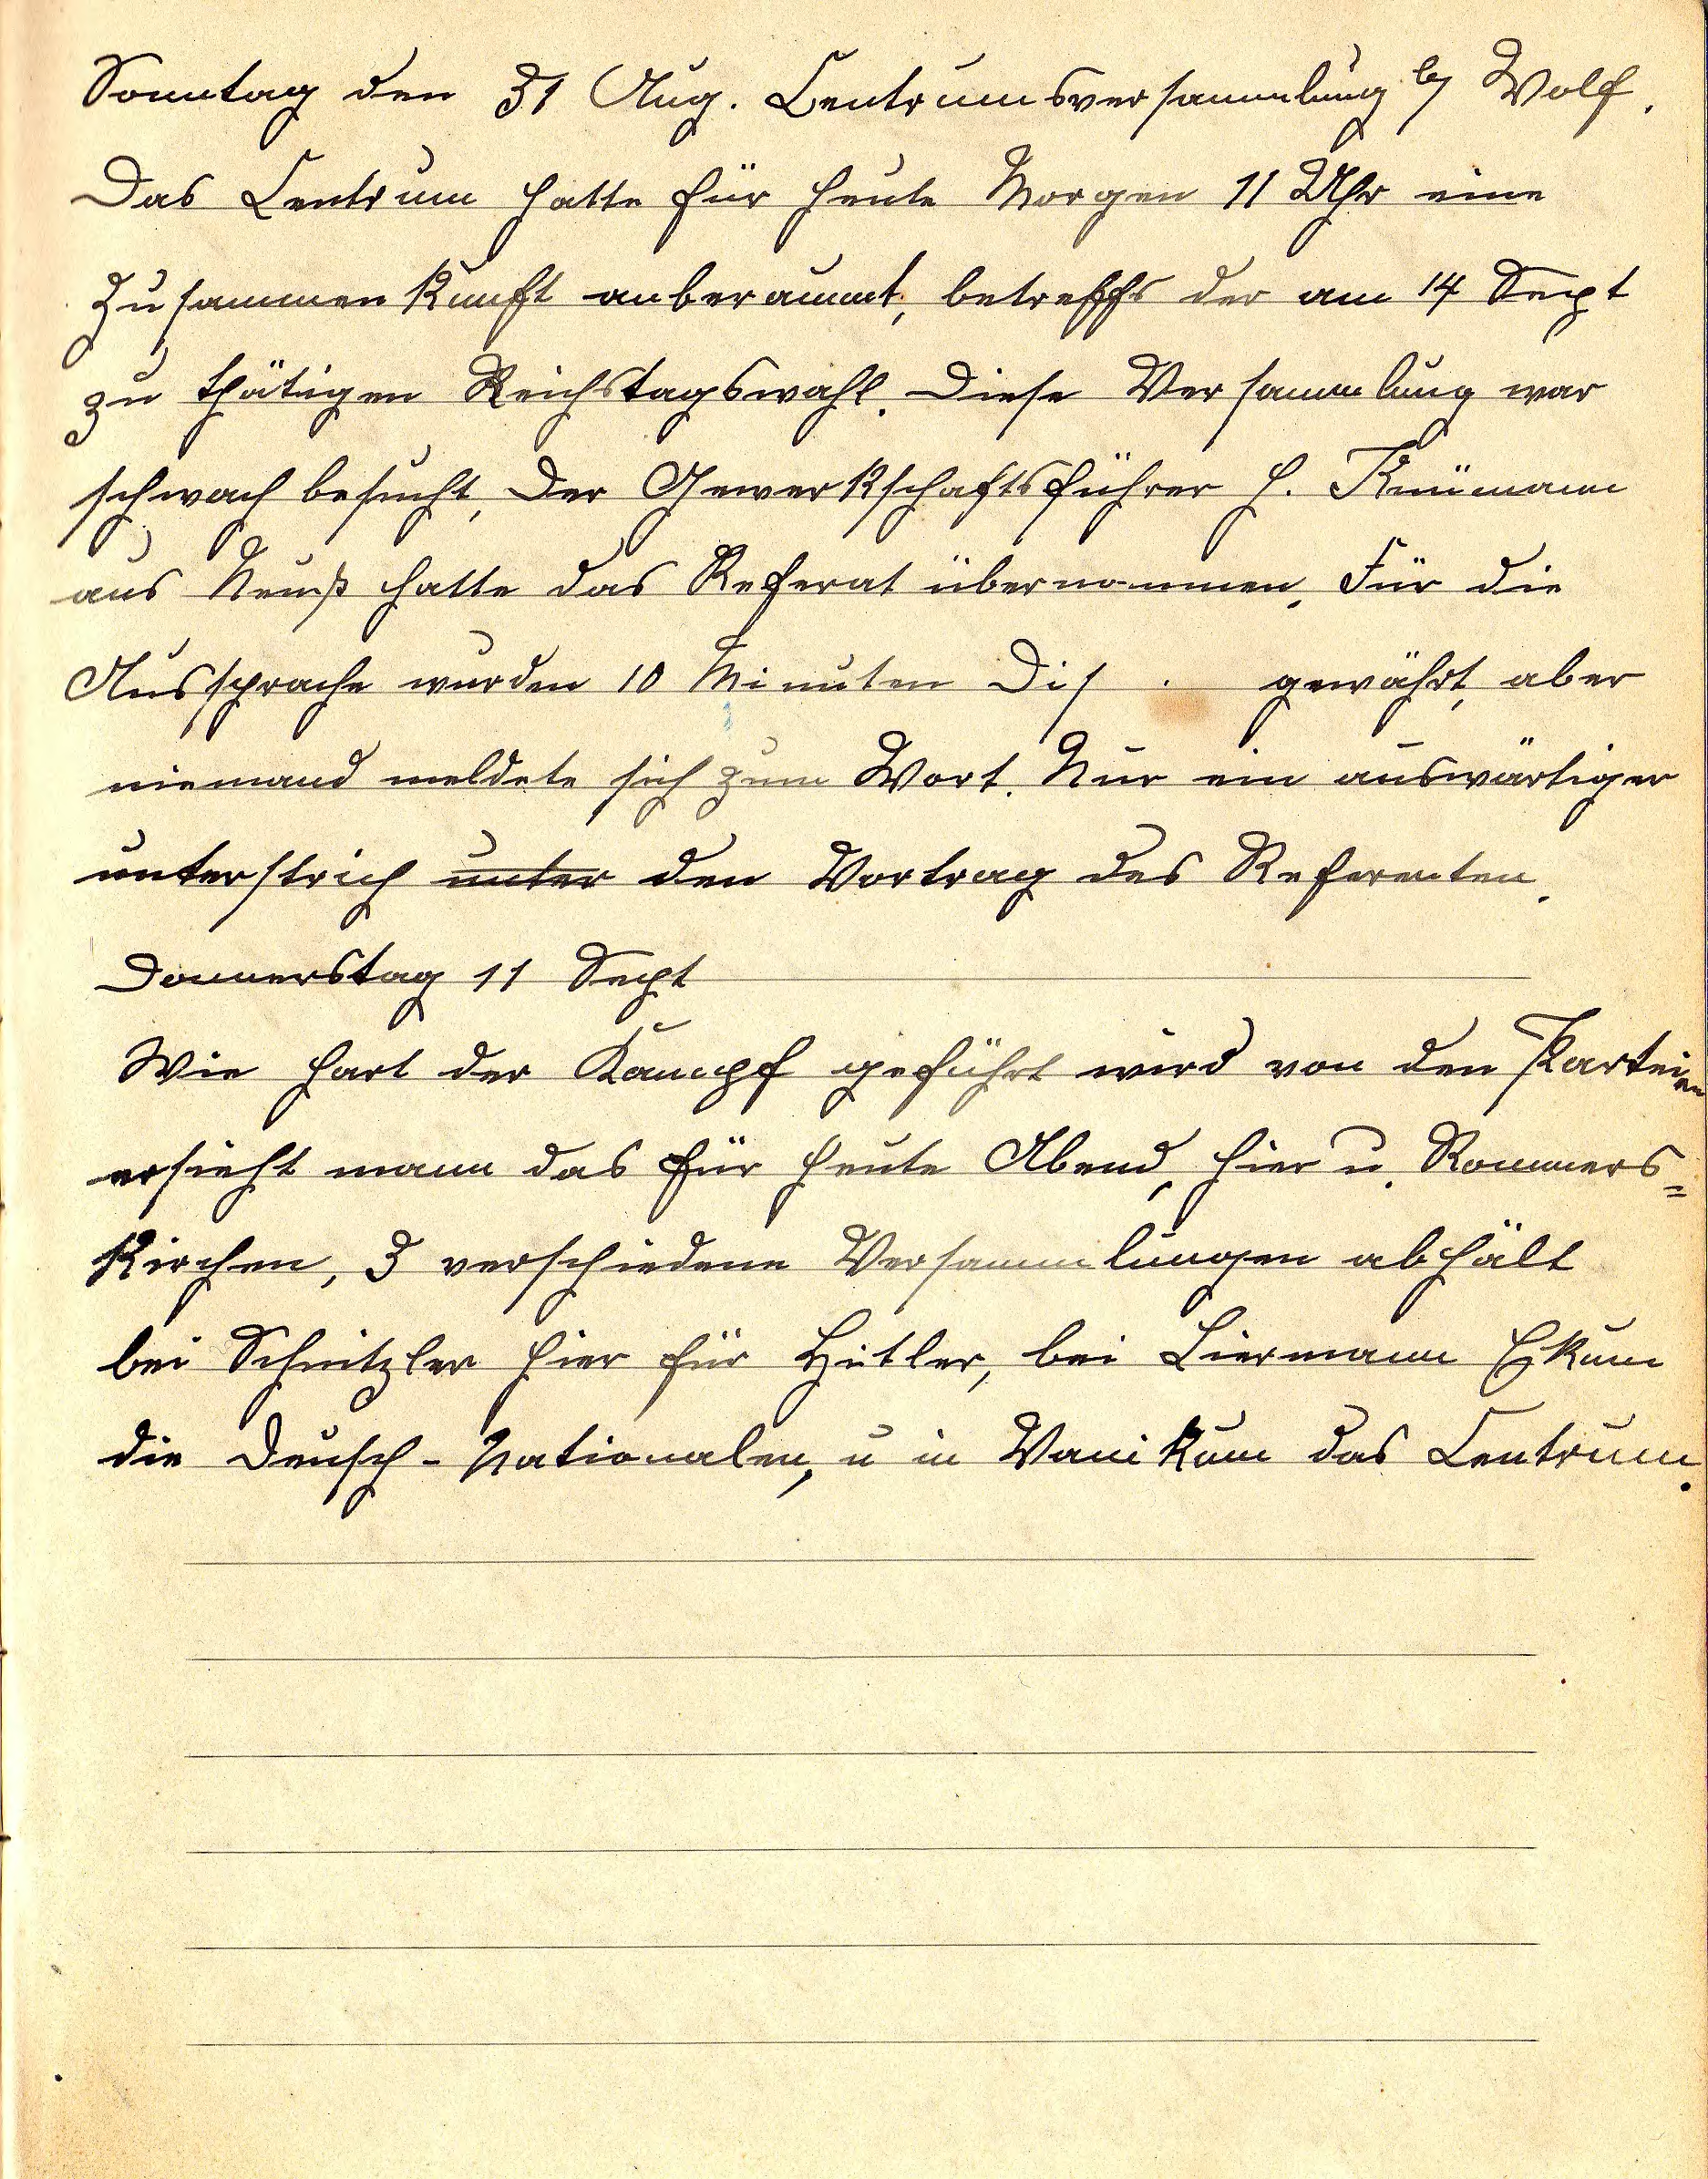 Sonntag den 31 Aug. Centrumsversammlung by Wolf.
Das Centrum hatte für heute Morgen 11 Uhr eine
Zusammenkunft anberaumt, betreffs der am 14 Sept
zu thätigen Reichstagswahl. Diese Versammlung war
schwach besucht, Der Gewerkschaftsführer H. Knümann
aus Neuß hatte das Referat übernommen. Für die
Aussprache wurden 10 Minuten Dis . gewährt, aber
niemand meldete sich zum Wort. Nur ein auswärtiger
unterstrich unter den Vortrag des Referenten.
Donnerstag 11 Sept
Wie hart der Kampf geführt wird von den Parteien
ersieht mann das für heute Abend, hier u. Rommers=
Kirchen, 3 verschiedene Versammlungen abhält
bei Schnitzler hier für Hitler, bei Liermann Ekum
die Deusch-Nationalen, u in Vanikum das Centrum.